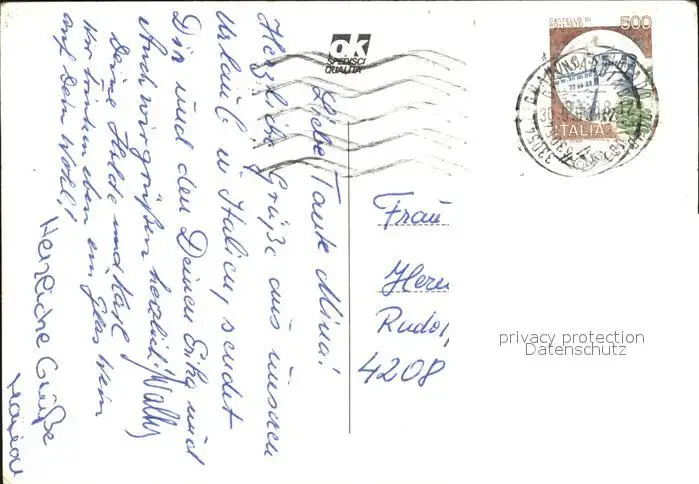 Liebe Tante Mina!
Herzliche Grüße aus unserem
Urlaub in Italien, sendet
Dir und den Deinen Erika und
Auch wir grüßen herzlich! Wally
Deine Hilde und Karl
Wir trinken eben ein Glas Wein
auf Dein Wohl!
Herzliche Grüße
ok
SPEDISCI
QUALITA'
CASTELLO DI
ROVERETO
500
ITALIA
Frau
Herm
Rudol
4208
privacy protection
Datenschutz